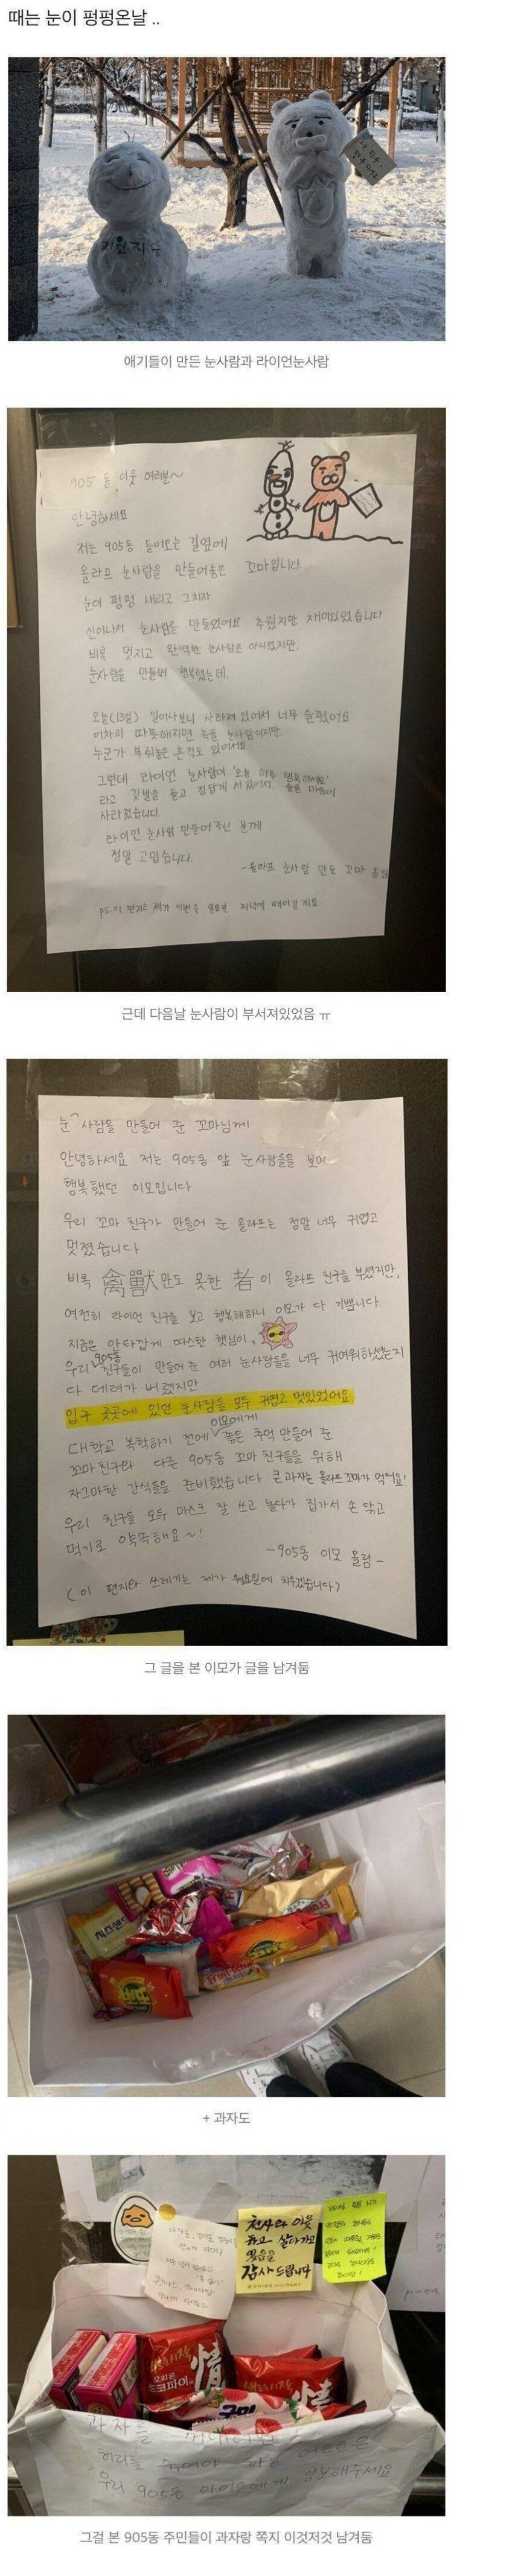 때는 눈이 펑펑온날 ..
지완지슈
오늘 하루
행복하세요
애기들이 만든 눈사람과 라이언눈사람
905동 이웃 여러분~
안녕하세요
저는 905동 들어오는 길옆에
올라프 눈사람을 만들어놓은 꼬마입니다.
눈이 펑펑 내리고 그치자
신이나서 눈사람을 만들었어요 추웠지만 재미있었습니다
비록 멋지고 완벽한 눈사람은 아니였지만,
눈사람을 만들며 행복했는데,
오늘(13일) 일어나보니 사라져 있어서 너무 슬펐어요
어차피 따뜻해지면 녹을 눈사람이지만,
누군가 부숴놓은 흔적도 있어서요
그런데 라이언 눈사람이 '오늘 하루 행복하세요'
라고 깃발을 들고 정답게 서 있어서, 슬픈 마음이
사라졌습니다
라이언 눈사람 만들어주신 분께
정말 고맙습니다.
-올라프 눈사람 만든 꼬마 올림
ps. 이 편지는 제가 이번주 일요일 저녁에 떼어갈게요
근데 다음날 눈사람이 부서져있었음 ㅠ
눈^사람을 만들어 준 꼬마님께
안녕하세요 저는 905동 앞 눈사람들을 보며
행복했던 이모입니다
우리 꼬마 친구가 만들어 준 올라프는 정말 너무 귀엽고
멋졌습니다
비록 禽獸만도 못한 者이 올라프 친구를 부셨지만,
여전히 라이언 친구를 보고 행복해하니 이모가 다 기쁩니다
지금은 안타깝게 따스한 햇님이,
우리 905동 친구들이 만들어 준 여러 눈사람들을 너무 귀여워하셨는지
다 데려가 버렸지만
입구 곳곳에 있던 눈사람들 모두 귀엽고 멋있었어요.
대학교 복학하기 전에 이모에게 좋은 추억 만들어 준
꼬마친구와 다른 905동 꼬마 친구들을 위해
자그마한 간식들을 준비했습니다 큰과자는 올라프꼬마가 먹어요!
우리 친구들 모두 마스크 잘 쓰고 놀다가 집가서 손 닦고
먹기로 약속해요~!
-905동 이모 올림-
(이 편지와 쓰레기는 제가 월요일에 치우겠습니다)
그 글을 본 이모가 글을 남겨둠
+ 과자도
천사의 이웃
감사드립니다
情
情
구미
과자를
허리를 숙여야 하는 어른들은
우리 905동 아이들에게 양보해주세요
그걸 본 905동 주민들이 과자랑 쪽지 이것저것 남겨둠